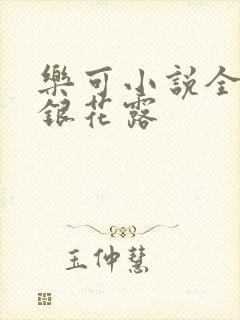 樂可小說全
銀花露
王仲慧